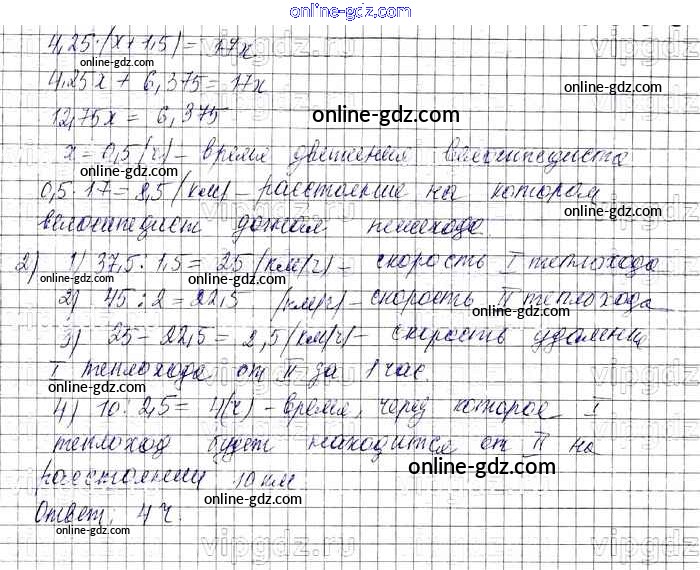 online-gdz.com
4,25·(x+1,5)=17x
online-gdz.com
4,25x + 6,375=17x
online-gdz.com
12,75x = 6,375
x = 0,5 (ч) – время движения велосипедиста
online-gdz.com
0,5·17=8,5 (км) – расстояние на котором
велосипедист догнал пешехода.
online-gdz.com
2) 1) 37,5:1,5=25 (км/ч) – скорость I теплохода
online-gdz.com
2) 45:2=22,5 (км/ч) – скорость II теплохода
online-gdz.com
3) 25–22,5=2,5 (км/ч) – скорость удаления
I теплохода от II за 1 час.
online-gdz.com
4) 10:2,5=4(ч) – время, через которое I
online-gdz.com
теплоход будет находится от II на
online-gdz.com
расстоянии 10 км.
online-gdz.com
Ответ: 4 ч.
online-gdz.com
vipgdz.ru